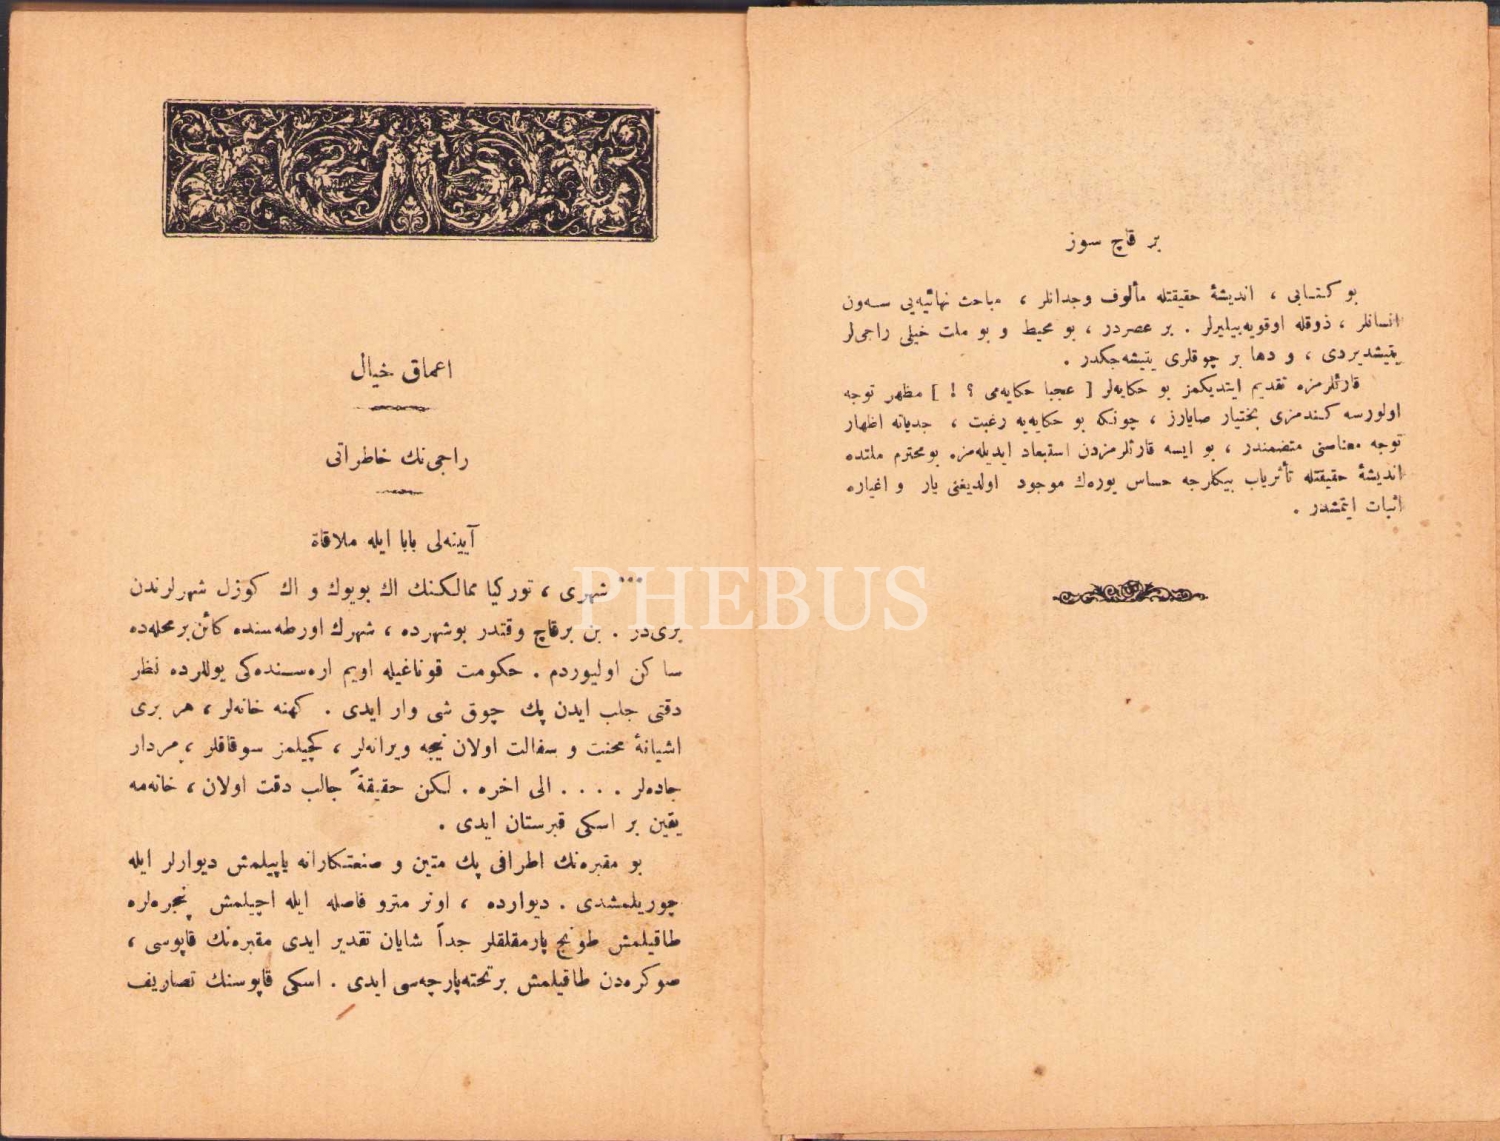 بر قاچ سوز
بو كتابی ، اندیشهٔ حقیقتله مألوف وجدانلر ، مباحث نهائیه‌یی سه‌ون
انسانلر ، ذوقله اوقویه‌بیلیرلر . بر عصردر ، بو محیط و بو ملت خیلی راجی‌لر
یتیشدیردی ، و دها بر چوقلری یتیشه‌جكدر .
قارئلرمزه تقدیم ایتدیكمز بو حكایه‌لر [ عجبا حكایه‌می ؟ ! ] مظهر توجه
اولورسه كندمزی بختیار صایارز ، چونكه بو حكایه‌یه رغبت ، جدیاته اظهار
توجه معناسنی متضمندر ، بو ایسه قارئلرمزدن استبعاد ایدیله‌مزه بومحترم ملتده
اندیشهٔ حقیقتله تأثریاب بیكلرجه حساس یوره‌ك موجود اولدیغنی یار و اغیاره
اثبات ایتمشدر .
اعماق خیال
راجی‌نك خاطراتی
آیینه‌لی بابا ایله ملاقاة
*** شهری ، توركیا ممالكنك اك بویوك و اك كوزل شهرلرندن
بری‌در . بن برقاچ وقتدر بوشهرده ، شهرك اورطه‌سنده كائن برمحله‌ده
ساكن اولیوردم . حكومت قوناغیله اویم اره‌سنده‌كی یوللرده نظر
دقتی جلب ایدن پك چوق شی وار ایدی . كهنه خانه‌لر ، هر بری
اشیانهٔ محنت و سفالت اولان نیجه ویرانه‌لر ، كچیلمز سوقاقلر ، مردار
جاده‌لر . . . . الی اخره . لكن حقیقةً جالب دقت اولان ، خانه‌مه
یقین بر اسكی قبرستان ایدی .
بو مقبره‌نك اطرافی پك متین و صنعتكارانه یاپیلمش دیوارلر ایله
چوریلمشدی . دیوارده ، اونر مترو فاصله ایله اچیلمش پنجره‌لره
طاقیلمش طونج پارمقلقلر جداً شایان تقدیر ایدی مقبره‌نك قاپوسی ،
صوكره‌دن طاقیلمش برتخته‌پارچه‌سی ایدی . اسكی قاپوسنك تصاریف
PHEBUS